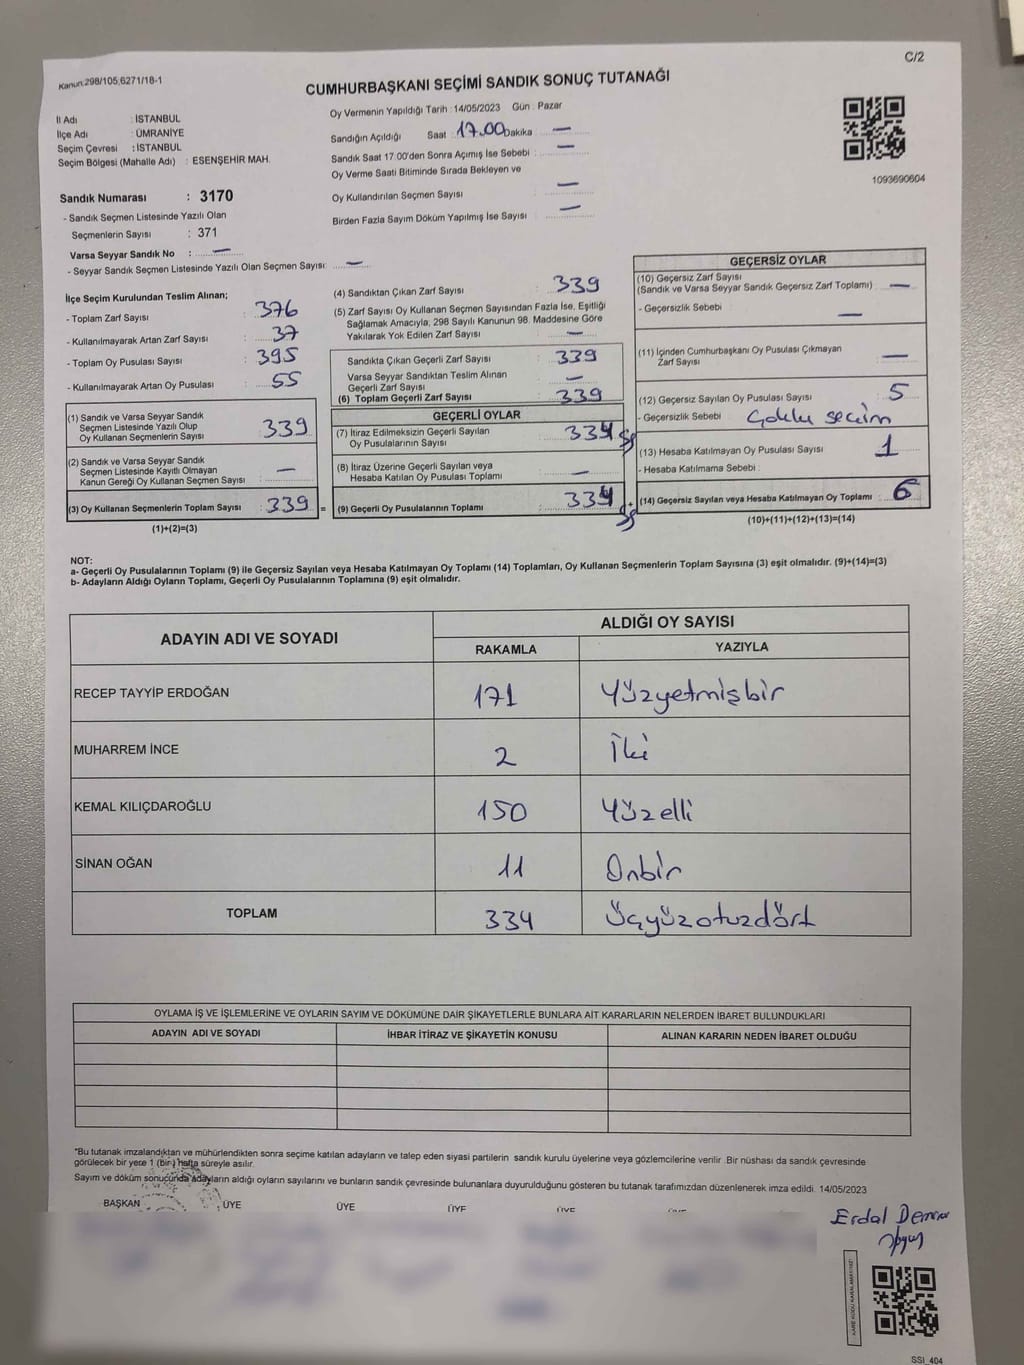 C/2
Kanun.298/105,6271/18-1
CUMHURBAŞKANI SEÇİMİ SANDIK SONUÇ TUTANAĞI
İl Adı : İSTANBUL
İlçe Adı : ÜMRANİYE
Seçim Çevresi : İSTANBUL
Seçim Bölgesi (Mahalle Adı) : ESENŞEHİR MAH.
Oy Vermenin Yapıldığı Tarih : 14/05/2023 Gün : Pazar
Sandığın Açıldığı Saat 17.00 Dakika —
Sandık Saat 17.00'den Sonra Açımış İse Sebebi : —
Oy Verme Saati Bitiminde Sırada Bekleyen ve
Oy Kullandırılan Seçmen Sayısı : —
Birden Fazla Sayım Döküm Yapılmış İse Sayısı : —
1093690604
Sandık Numarası : 3170
- Sandık Seçmen Listesinde Yazılı Olan
Seçmenlerin Sayısı : 371
Varsa Seyyar Sandık No : —
- Seyyar Sandık Seçmen Listesinde Yazılı Olan Seçmen Sayısı: —
İlçe Seçim Kurulundan Teslim Alınan;
- Toplam Zarf Sayısı : 376
- Kullanılmayarak Artan Zarf Sayısı : 37
- Toplam Oy Pusulası Sayısı : 395
- Kullanılmayarak Artan Oy Pusulası : 55
(1) Sandık ve Varsa Seyyar Sandık
Seçmen Listesinde Yazılı Olup
Oy Kullanan Seçmenlerin Sayısı 339
(2) Sandık ve Varsa Seyyar Sandık
Seçmen Listesinde Kayıtlı Olmayan
Kanun Gereği Oy Kullanan Seçmen Sayısı —
(3) Oy Kullanan Seçmenlerin Toplam Sayısı : 339 =
(1)+(2)=(3)
(4) Sandıktan Çıkan Zarf Sayısı : 339
(5) Zarf Sayısı Oy Kullanan Seçmen Sayısından Fazla İse, Eşitliği
Sağlamak Amacıyla; 298 Sayılı Kanunun 98. Maddesine Göre
Yakılarak Yok Edilen Zarf Sayısı : —
Sandıkta Çıkan Geçerli Zarf Sayısı : 339
Varsa Seyyar Sandıktan Teslim Alınan
Geçerli Zarf Sayısı : —
(6) Toplam Geçerli Zarf Sayısı : 339
GEÇERLİ OYLAR
(7) İtiraz Edilmeksizin Geçerli Sayılan
Oy Pusulalarının Sayısı : 334
(8) İtiraz Üzerine Geçerli Sayılan veya
Hesaba Katılan Oy Pusulası Toplamı : —
(9) Geçerli Oy Pusulalarının Toplamı : 334 +
GEÇERSİZ OYLAR
(10) Geçersiz Zarf Sayısı
(Sandık ve Varsa Seyyar Sandık Geçersiz Zarf Toplamı) : —
- Geçersizlik Sebebi : —
(11) İçinden Cumhurbaşkanı Oy Pusulası Çıkmayan
Zarf Sayısı : —
(12) Geçersiz Sayılan Oy Pusulası Sayısı : 5
- Geçersizlik Sebebi : Çoklu seçim
(13) Hesaba Katılmayan Oy Pusulası Sayısı : 1
- Hesaba Katılmama Sebebi :
(14) Geçersiz Sayılan veya Hesaba Katılmayan Oy Toplamı : 6
(10)+(11)+(12)+(13)=(14)
NOT:
a- Geçerli Oy Pusulalarının Toplamı (9) ile Geçersiz Sayılan veya Hesaba Katılmayan Oy Toplamı (14) Toplamları, Oy Kullanan Seçmenlerin Toplam Sayısına (3) eşit olmalıdır. (9)+(14)=(3)
b- Adayların Aldığı Oyların Toplamı, Geçerli Oy Pusulalarının Toplamına (9) eşit olmalıdır.
ADAYIN ADI VE SOYADI
ALDIĞI OY SAYISI
RAKAMLA YAZIYLA
RECEP TAYYİP ERDOĞAN 171 Yüzyetmişbir
MUHARREM İNCE 2 İki
KEMAL KILIÇDAROĞLU 150 Yüzelli
SİNAN OĞAN 11 Onbir
TOPLAM 334 Üçyüzotuzdört
OYLAMA İŞ VE İŞLEMLERİNE VE OYLARIN SAYIM VE DÖKÜMÜNE DAİR ŞİKAYETLERLE BUNLARA AİT KARARLARIN NELERDEN İBARET BULUNDUKLARI
ADAYIN ADI VE SOYADI İHBAR İTİRAZ VE ŞİKAYETİN KONUSU ALINAN KARARIN NEDEN İBARET OLDUĞU
*Bu tutanak imzalandıktan ve mühürlendikten sonra seçime katılan adayların ve talep eden siyasi partilerin sandık kurulu üyelerine veya gözlemcilerine verilir. Bir nüshası da sandık çevresinde
görülecek bir yere 1 (bir) hafta süreyle asılır.
Sayım ve döküm sonucunda adayların aldığı oyların sayılarını ve bunların sandık çevresinde bulunanlara duyurulduğunu gösteren bu tutanak tarafımızdan düzenlenerek imza edildi. 14/05/2023
BAŞKAN ÜYE ÜYE ÜYE ÜYE
Erdal
SSI_404